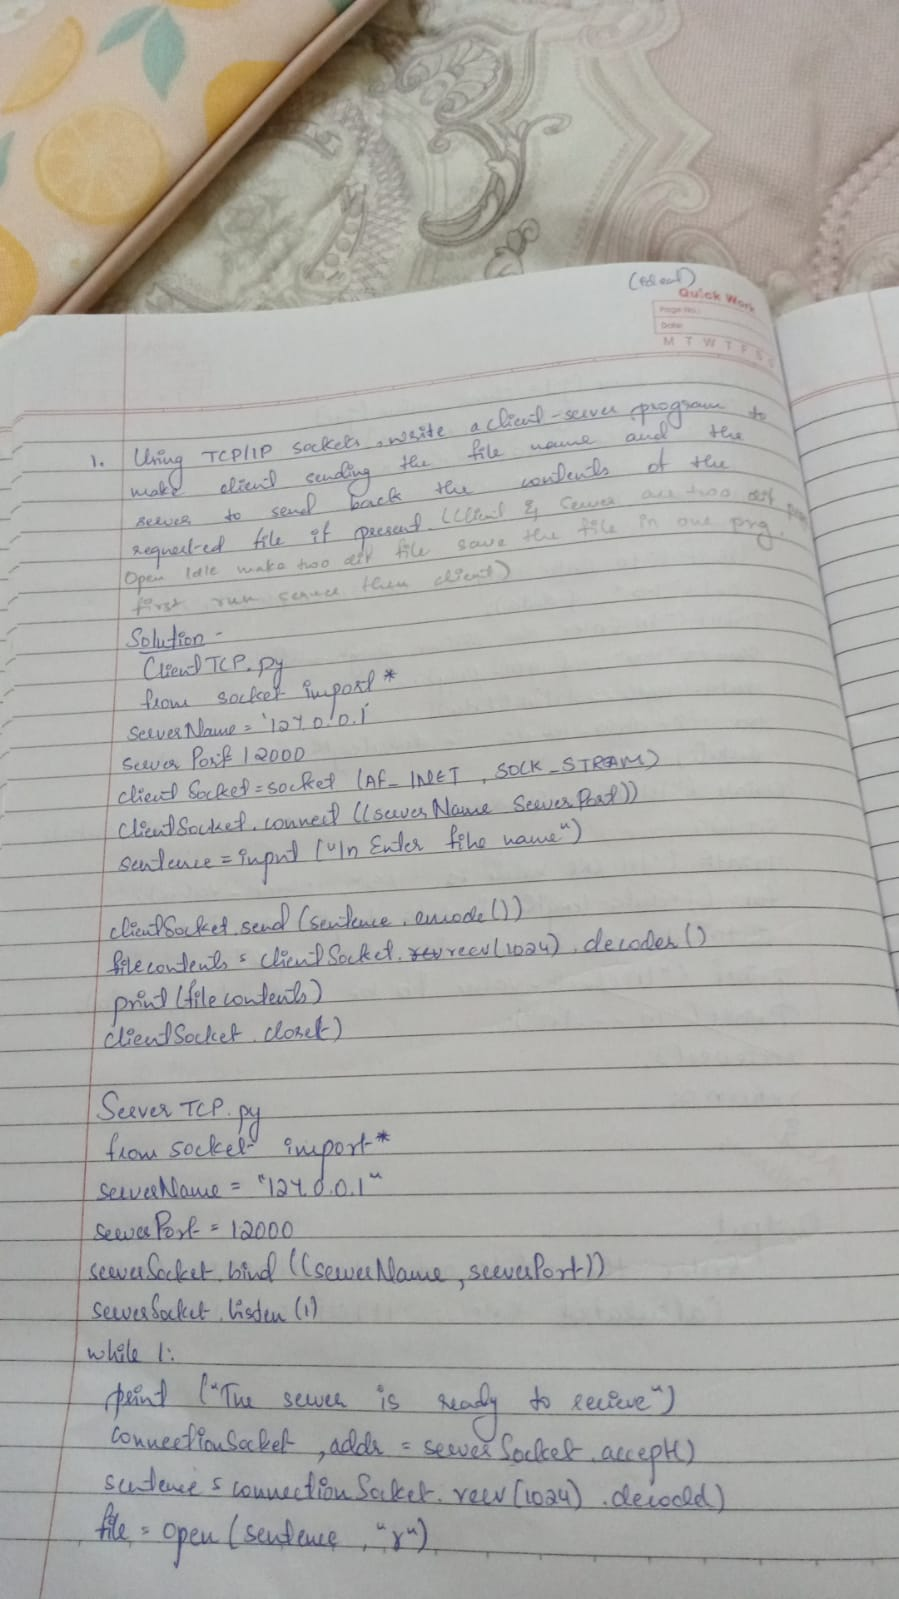 Quick Work
Page No.:
Date:
M T W T F S S
1. Using TCP/IP sockets, write a client-server program to
make client sending the file name and the
server to send back the contents of the
requested file if present. (Client & Server are two dif
Open Idle make two dif file save the file in one prg.
first run server then client)
Solution -
Client TCP.py
from socket import *
serverName = '127.0.0.1'
server Port 12000
client Socket = socket (AF_INET, SOCK_STREAM)
clientSocket.connect ((serverName Server Port))
sentence = input ("\n Enter file name")
clientSocket.send (sentence.encode())
filecontents = clientSocket.recv(1024).decoder()
print (file contents)
clientSocket.close()
Server TCP.py
from socket import *
serverName = "127.0.0.1"
serverPort = 12000
serverSocket.bind ((serverName, serverPort))
serverSocket.listen (1)
while 1:
print ("The server is ready to recieve")
connectionSocket, addr = serverSocket.accept()
sentence = connectionSocket.recv (1024).decode()
file = open (sentence, "r")